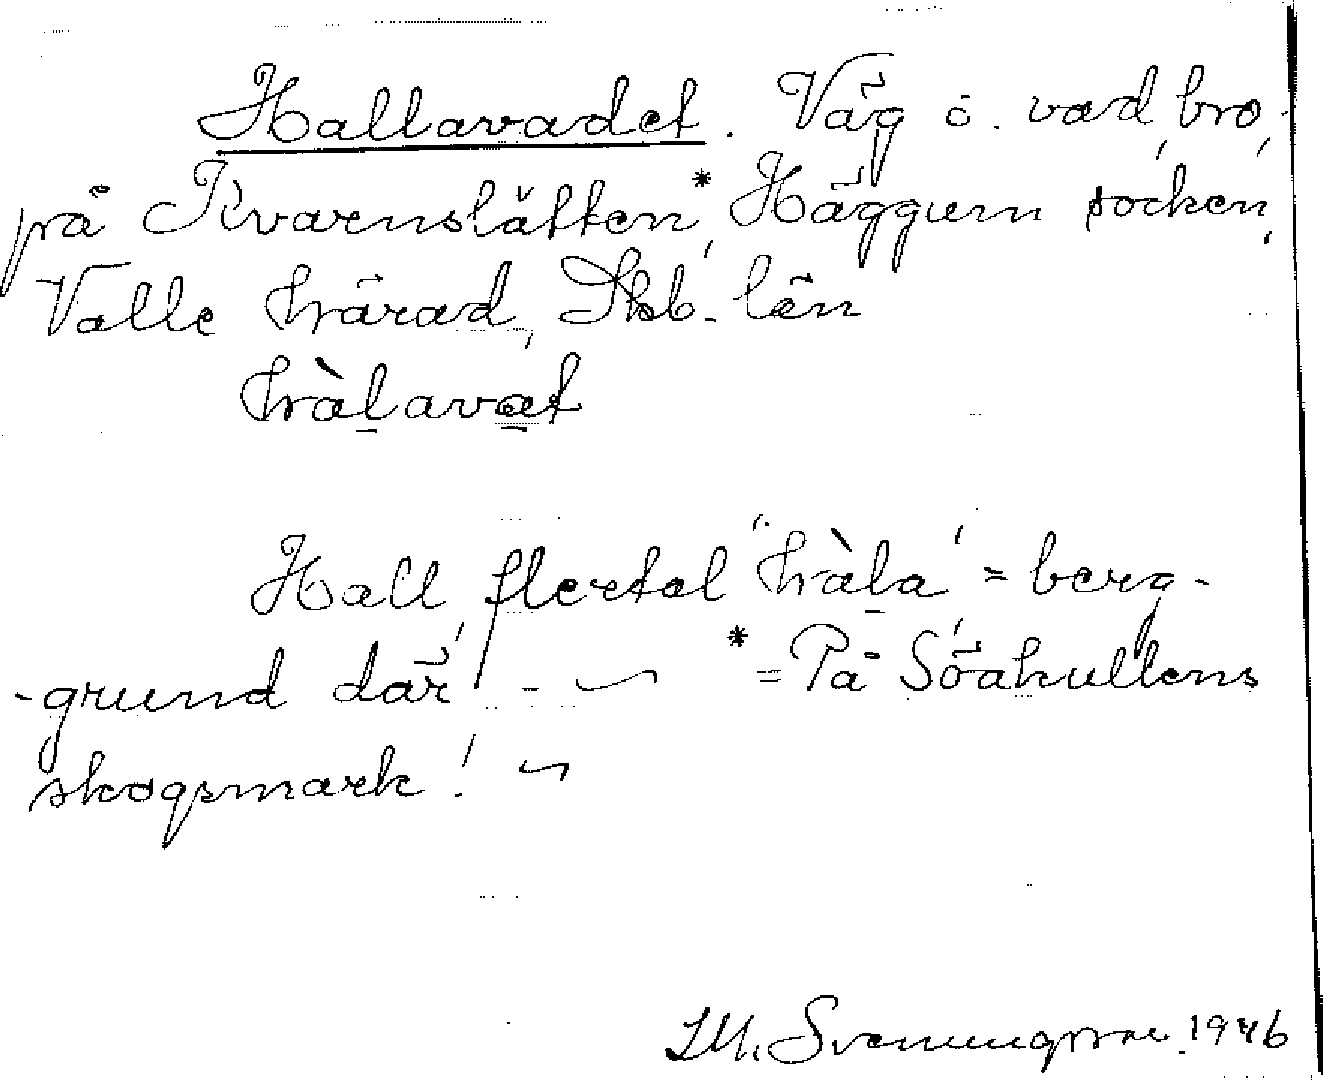 Hallavadet. Väg o. vad, bro,
på Kvarnslätten*, Häggum socken,
Valle härad, Skb. län
hàlavat
Hall, flertal "hàla" = berg-
-grund där! - *= På Söakullens
skogsmark!
I.M. Svenungsson. 1946